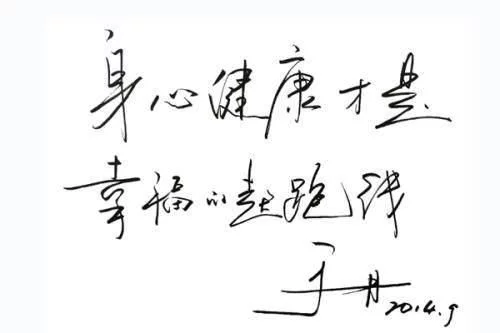 身心健康才是
幸福的起跑线
于丹 2014.9